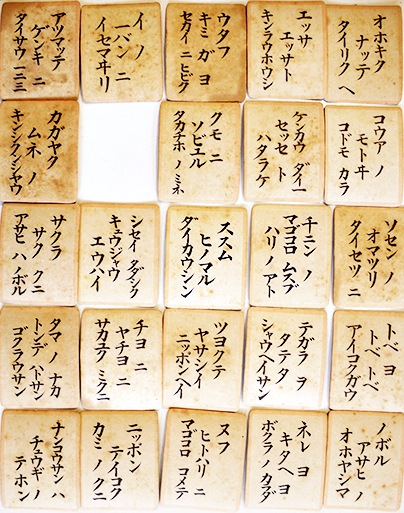 オホキク
ナッテ
タイリク ヘ
エッサ
エッサト
キンラウホウシ
ウタフ
キミ ガ ヨ
セカイ ニ ヒビク
イ ノ
一バン ニ
イセマヰリ
アツマッテ
ゲンキ ニ
タイサウ 一二三
コウア ノ
モトヰ
コドモ カラ
ケンカウ ダイ一
セッセ ト
ハタラケ
クモ ニ
ソビエル
タカチホ ノ ミネ
カガヤク
ムネ ノ
キンシクンシャウ
ソセン ノ
オマツリ
タイセツ ニ
千ニン ノ
マゴコロ ムスブ
ハリ ノ アト
ススム
ヒノマル
ダイカウシン
シセイ タダシク
キュウジャウ
エウハイ
サクラ
サク クニ
アサヒ ハ ノボル
トベ ヨ
トベ トベ
アイコクガウ
テガラ ヲ
タテタ
シャウヘイサン
ツヨクテ
ヤサシイ
ニッポンヘイ
チヨ ニ
ヤチヨ ニ
サカユク ミクニ
タマ ノ ナカ
トンデ ハトサン
ゴクラウサン
ノボル
アサヒ ノ
オホヤシマ
ネレ ヨ
キタヘ ヨ
ボクラ ノ カラダ
ヌフ
ヒトハリ ニ
マゴコロ コメテ
ニッポン
テイコク
カミ ノ クニ
ナンコウサン ハ
チュウギ ノ
テホン